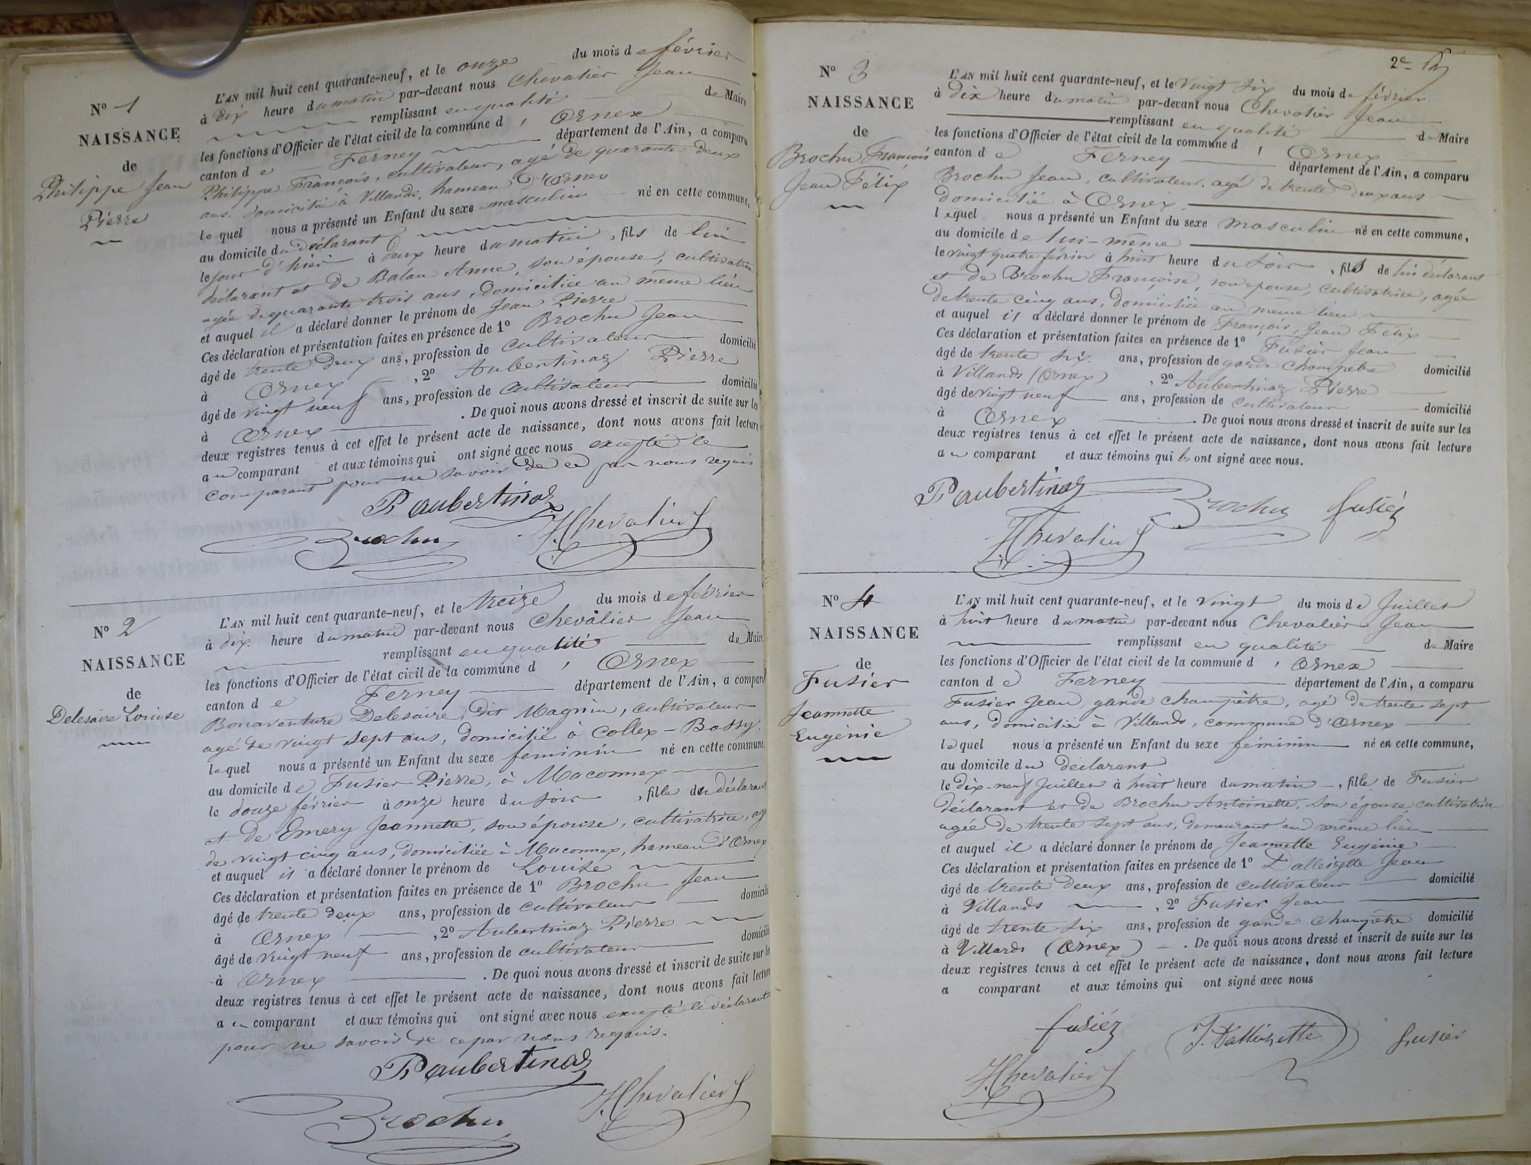 N° 1
NAISSANCE
de
Philippe Jean
Pierre
L'AN mil huit cent quarante-neuf, et le onze du mois de février
à dix heure du matin par-devant nous Chevalier Jean
remplissant en qualité de Maire
les fonctions d'Officier de l'état civil de la commune d' Ornex
canton de Ferney département de l'Ain, a comparu
Philippe François, cultivateur, agé de quarante deux
ans, domicilié à Villards, hameau d'Ornex
lequel nous a présenté un Enfant du sexe masculin né en cette commune,
au domicile du déclarant
le jour d'hier à deux heure du matin, fils de lui
déclarant et de Balan Anne, son épouse, cultivatrice
agée de quarante trois ans, domiciliée au même lieu
et auquel il a déclaré donner le prénom de Jean Pierre
Ces déclaration et présentation faites en présence de 1° Brochu Jean
âgé de trente deux ans, profession de cultivateur domicilié
à Ornex, 2° Aubertinaz Pierre
âgé de vingt neuf ans, profession de cultivateur domicilié
à Ornex. De quoi nous avons dressé et inscrit de suite sur les
deux registres tenus à cet effet le présent acte de naissance, dont nous avons fait lecture
au comparant et aux témoins qui ont signé avec nous excepté le
comparant pour ne savoir de ce par nous requis
P aubertinaz
Brochu J Chevalier
N° 2
NAISSANCE
de
Delesaire Louise
L'AN mil huit cent quarante-neuf, et le treize du mois de février
à dix heure du matin par-devant nous Chevalier Jean
remplissant en qualité de Maire
les fonctions d'Officier de l'état civil de la commune d' Ornex
canton de Ferney département de l'Ain, a comparu
Bonaventure Delesaire dit Magnin, cultivateur
agé de vingt sept ans, domicilié à Collex-Bossy
lequel nous a présenté un Enfant du sexe feminin né en cette commune,
au domicile de Fusier Pierre, à Maconnex
le douze février à onze heure du soir, fille du déclarant
et de Emery Jeannette, son épouse, cultivatrice, agée
de vingt cinq ans, domiciliée à Maconnex, hameau d'Ornex
et auquel il a déclaré donner le prénom de Louise
Ces déclaration et présentation faites en présence de 1° Brochu Jean
âgé de trente deux ans, profession de cultivateur domicilié
à Ornex, 2° Aubertinaz Pierre
âgé de vingt neuf ans, profession de cultivateur domicilié
à Ornex. De quoi nous avons dressé et inscrit de suite sur les
deux registres tenus à cet effet le présent acte de naissance, dont nous avons fait lecture
au comparant et aux témoins qui ont signé avec nous excepté le déclarant
pour ne savoir de ce par nous requis.
P aubertinaz
Brochu J Chevalier
2e
N° 3
NAISSANCE
de
Brochu François
Jean Félix
L'AN mil huit cent quarante-neuf, et le vingt six du mois de février
à dix heure du matin par-devant nous Chevalier Jean
remplissant en qualité de Maire
les fonctions d'Officier de l'état civil de la commune d' Ornex
canton de Ferney département de l'Ain, a comparu
Brochu Jean, cultivateur, agé de trente deux ans
domicilié à Ornex
lequel nous a présenté un Enfant du sexe masculin né en cette commune,
au domicile de lui-même
le vingt quatre février à huit heure du soir, fils de lui déclarant
et de Brochu Françoise, son épouse, cultivatrice, agée
de trente cinq ans, domiciliée au même lieu
et auquel il a déclaré donner le prénom de François, Jean Félix
Ces déclaration et présentation faites en présence de 1° Fusier Jean
âgé de trente six ans, profession de garde champêtre domicilié
à Villards (Ornex), 2° Aubertinaz Pierre
âgé de vingt neuf ans, profession de cultivateur domicilié
à Ornex. De quoi nous avons dressé et inscrit de suite sur les
deux registres tenus à cet effet le présent acte de naissance, dont nous avons fait lecture
au comparant et aux témoins qui ont signé avec nous.
P aubertinaz Brochu fusiéz
J Chevalier
N° 4
NAISSANCE
de
Fusier
Jeannette
Eugénie
L'AN mil huit cent quarante-neuf, et le vingt du mois de Juillet
à huit heure du matin par-devant nous Chevalier Jean
remplissant en qualité de Maire
les fonctions d'Officier de l'état civil de la commune d' Ornex
canton de Ferney département de l'Ain, a comparu
Fusier Jean garde champêtre, agé de trente sept
ans, domicilié à Villards, commune d'Ornex
lequel nous a présenté un Enfant du sexe féminin né en cette commune,
au domicile du déclarant
le dix-neuf Juillet à huit heure du matin, fille de Fusier
déclarant et de Brochu Antoinette, son épouse cultivatrice
agée de trente sept ans, demeurant au même lieu
et auquel il a déclaré donner le prénom de Jeannette Eugénie
Ces déclaration et présentation faites en présence de 1° Valleizette Jean
âgé de trente deux ans, profession de cultivateur domicilié
à Villards, 2° Fusier Jean
âgé de trente six ans, profession de garde champêtre domicilié
à Villards (Ornex). De quoi nous avons dressé et inscrit de suite sur les
deux registres tenus à cet effet le présent acte de naissance, dont nous avons fait lecture
a comparant et aux témoins qui ont signé avec nous
fusiéz J. Valleizette fusier
J Chevalier